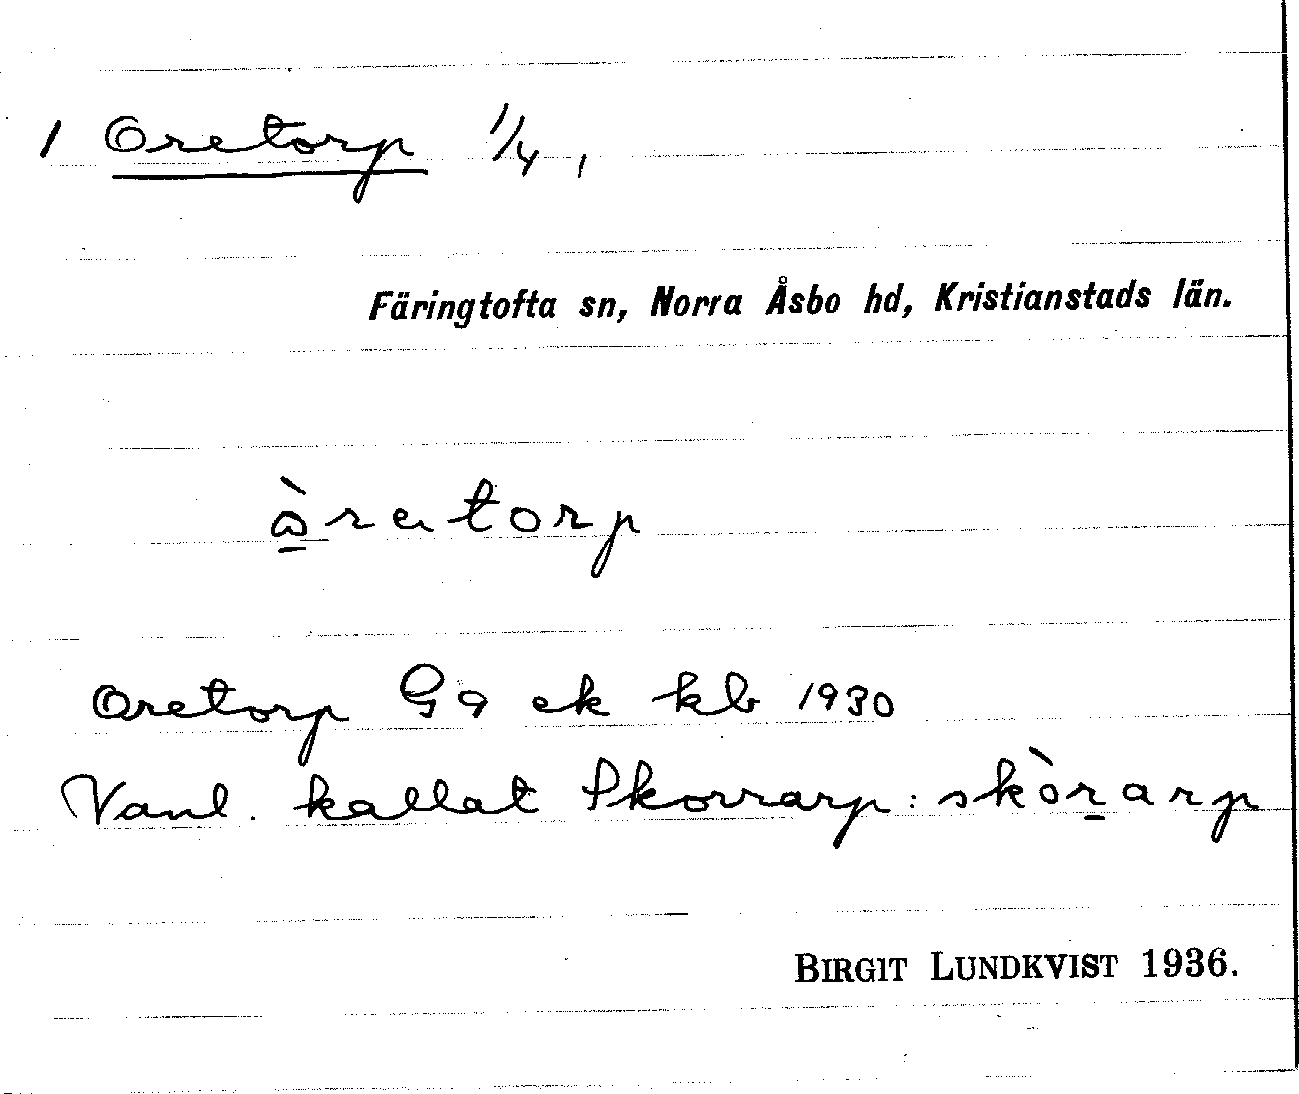 1 Oretorp 1/4,
Färingtofta sn, Norra Åsbo hd, Kristianstads län.
òretorp
Oretorp Gg ek kb 1930
Vanl. kallat Skorrarp: skòrarp
BIRGIT LUNDKVIST 1936.